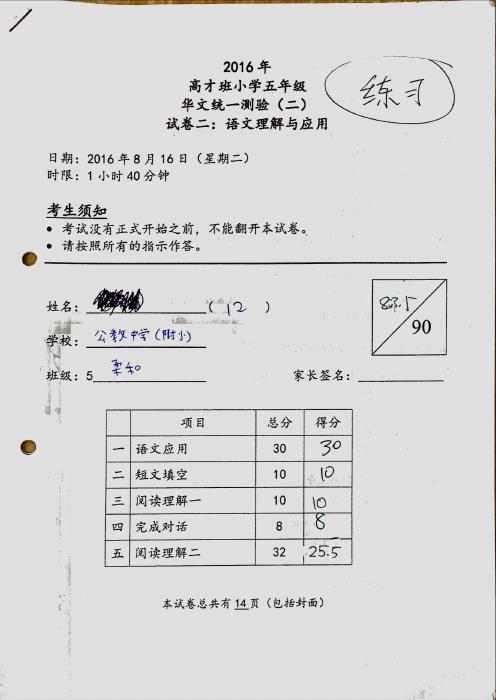 2016 年
高才班小学五年级
华文统一测验（二）
试卷二：语文理解与应用
练习
日期：2016 年 8 月 16 日（星期二）
时限：1 小时 40 分钟
考生须知
• 考试没有正式开始之前，不能翻开本试卷。
• 请按照所有的指示作答。
姓名： ( 12 )
83.5
90
学校：公教中学(附小)
班级：5 柔和 家长签名：
项目 总分 得分
一 语文应用 30 30
二 短文填空 10 10
三 阅读理解一 10 10
四 完成对话 8 8
五 阅读理解二 32 25.5
本试卷总共有 14 页（包括封面）